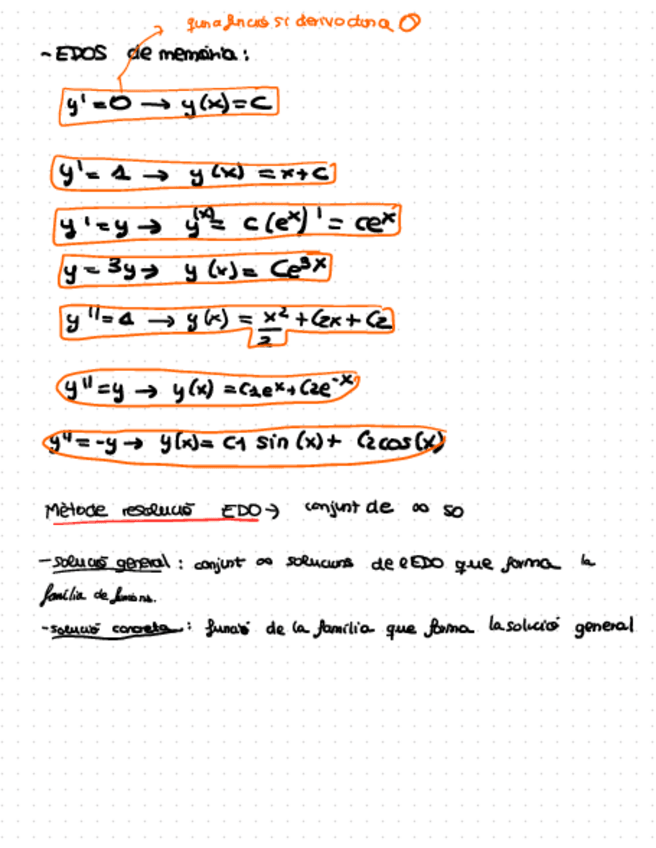 quina funció si deriva dona 0
- EDOS de memòria:
y' = 0 → y(x) = C
y' = 1 → y(x) = x + C
y' = y → y(x) = c(eˣ)' = ceˣ
y = 3y → y(x) = Ce³ˣ
y'' = 1 → y(x) = x²/2 + C2x + C2
y'' = y → y(x) = C1eˣ + C2e⁻ˣ
y'' = -y → y(x) = C1 sin(x) + C2 cos(x)
Mètode resolució EDO → conjunt de ∞ so
- solució general: conjunt ∞ solucions de l'EDO que forma la
família de funcions.
- solució concreta: funció de la família que forma la solució general